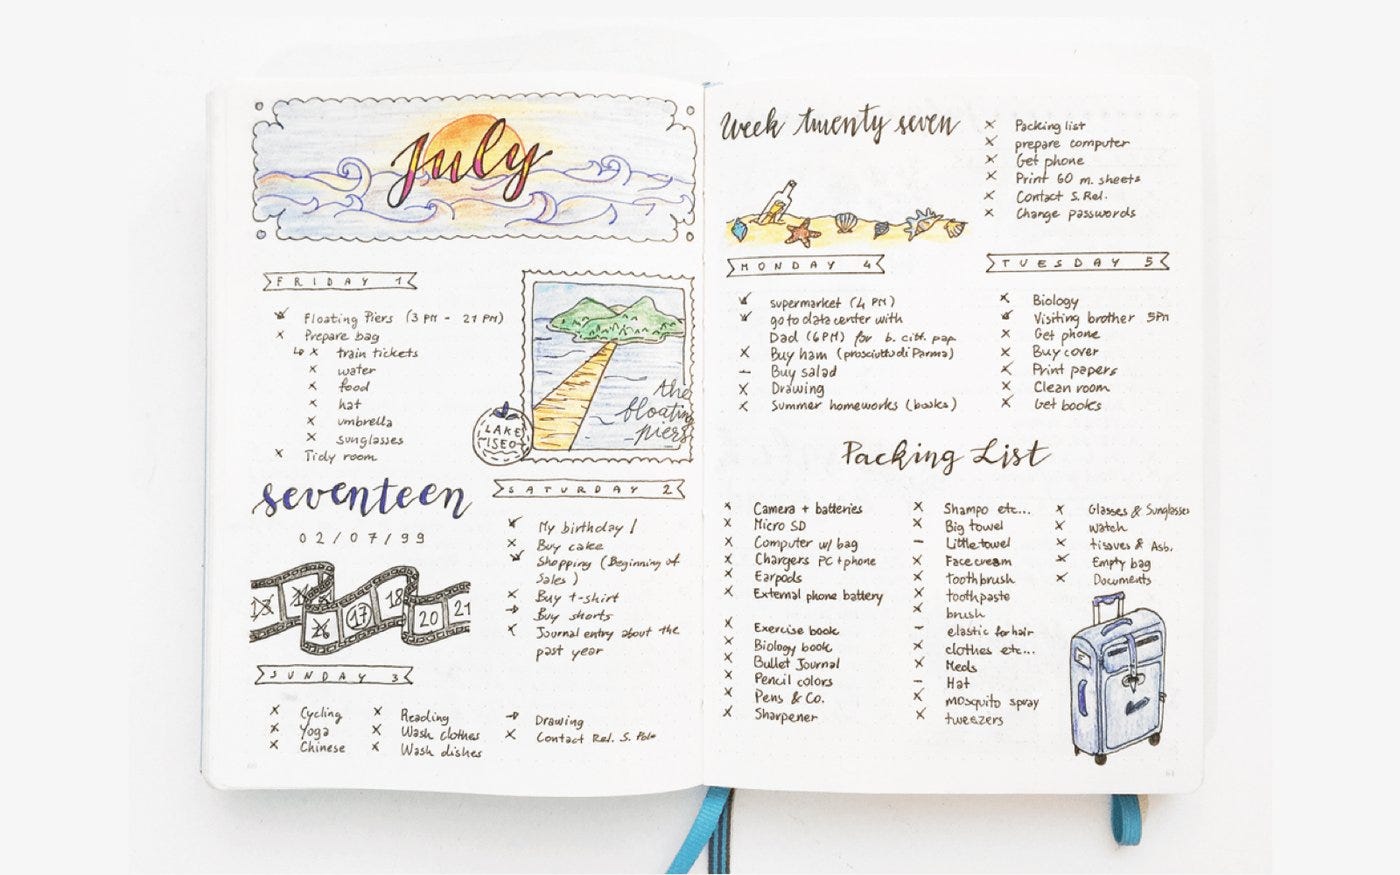 July
FRIDAY 1
Floating Piers (3 PM - 21 PM)
x Prepare bag
x train tickets
x water
x food
x hat
x umbrella
x sunglasses
x Tidy room
the
floating
piers
LAKE
ISEO
seventeen
02/07/99
16
17
18
20
21
SATURDAY 2
My birthday!
x Buy cake
Shopping (Beginning of
Sales)
x Buy t-shirt
→ Buy shorts
x Journal entry about the
past year
SUNDAY 3
x Cycling
x Yoga
x Chinese
x Reading
x Wash clothes
x Wash dishes
→ Drawing
x Contact Rel. S.
Week twenty seven
x Packing list
x prepare computer
x Get phone
x Print 60 m. sheets
x Contact S. Rel.
x Change passwords
MONDAY 4
supermarket (4 PM)
go to data center with
Dad (6PM) for b. citt. pap.
x Buy ham (prosciutto di Parma)
– Buy salad
x Drawing
x Summer homeworks (books)
TUESDAY 5
x Biology
Visiting brother 5PM
x Get phone
x Buy cover
x Print papers
x Clean room
x Get books
Packing List
x Camera + batteries
x Micro SD
x Computer w/ bag
x Chargers PC + phone
x Earpods
x External phone battery
x Exercise book
x Biology book
x Bullet Journal
x Pencil colors
x Pens & Co.
x Sharpener
x Shampo etc...
x Big towel
– Little towel
x Face cream
x toothbrush
x toothpaste
x brush
– elastic for hair
x clothes etc...
x Meds
– Hat
x mosquito spray
x tweezers
x Glasses & Sunglasses
x watch
x tissues & Asb.
x Empty bag
x Documents
60
61